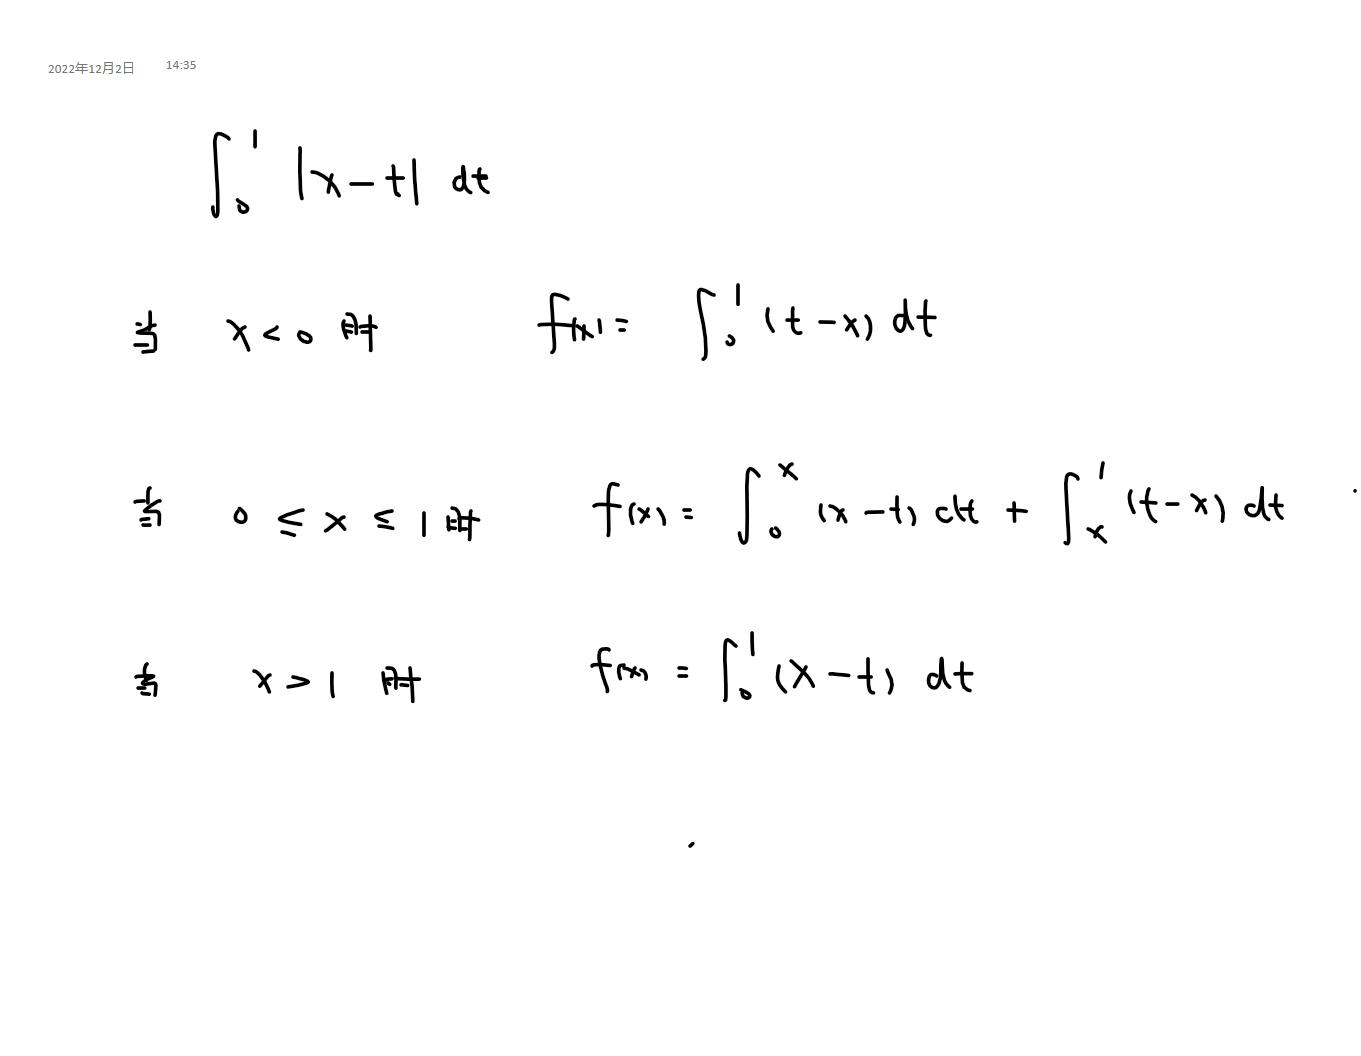 2022年12月2日 14:35
∫₀¹ |x-t| dt
当 x<0 时 f(x) = ∫₀¹ (t-x) dt
当 0 ≤ x ≤ 1 时 f(x) = ∫₀ˣ (x-t) dt + ∫ₓ¹ (t-x) dt
当 x>1 时 f(x) = ∫₀¹ (x-t) dt